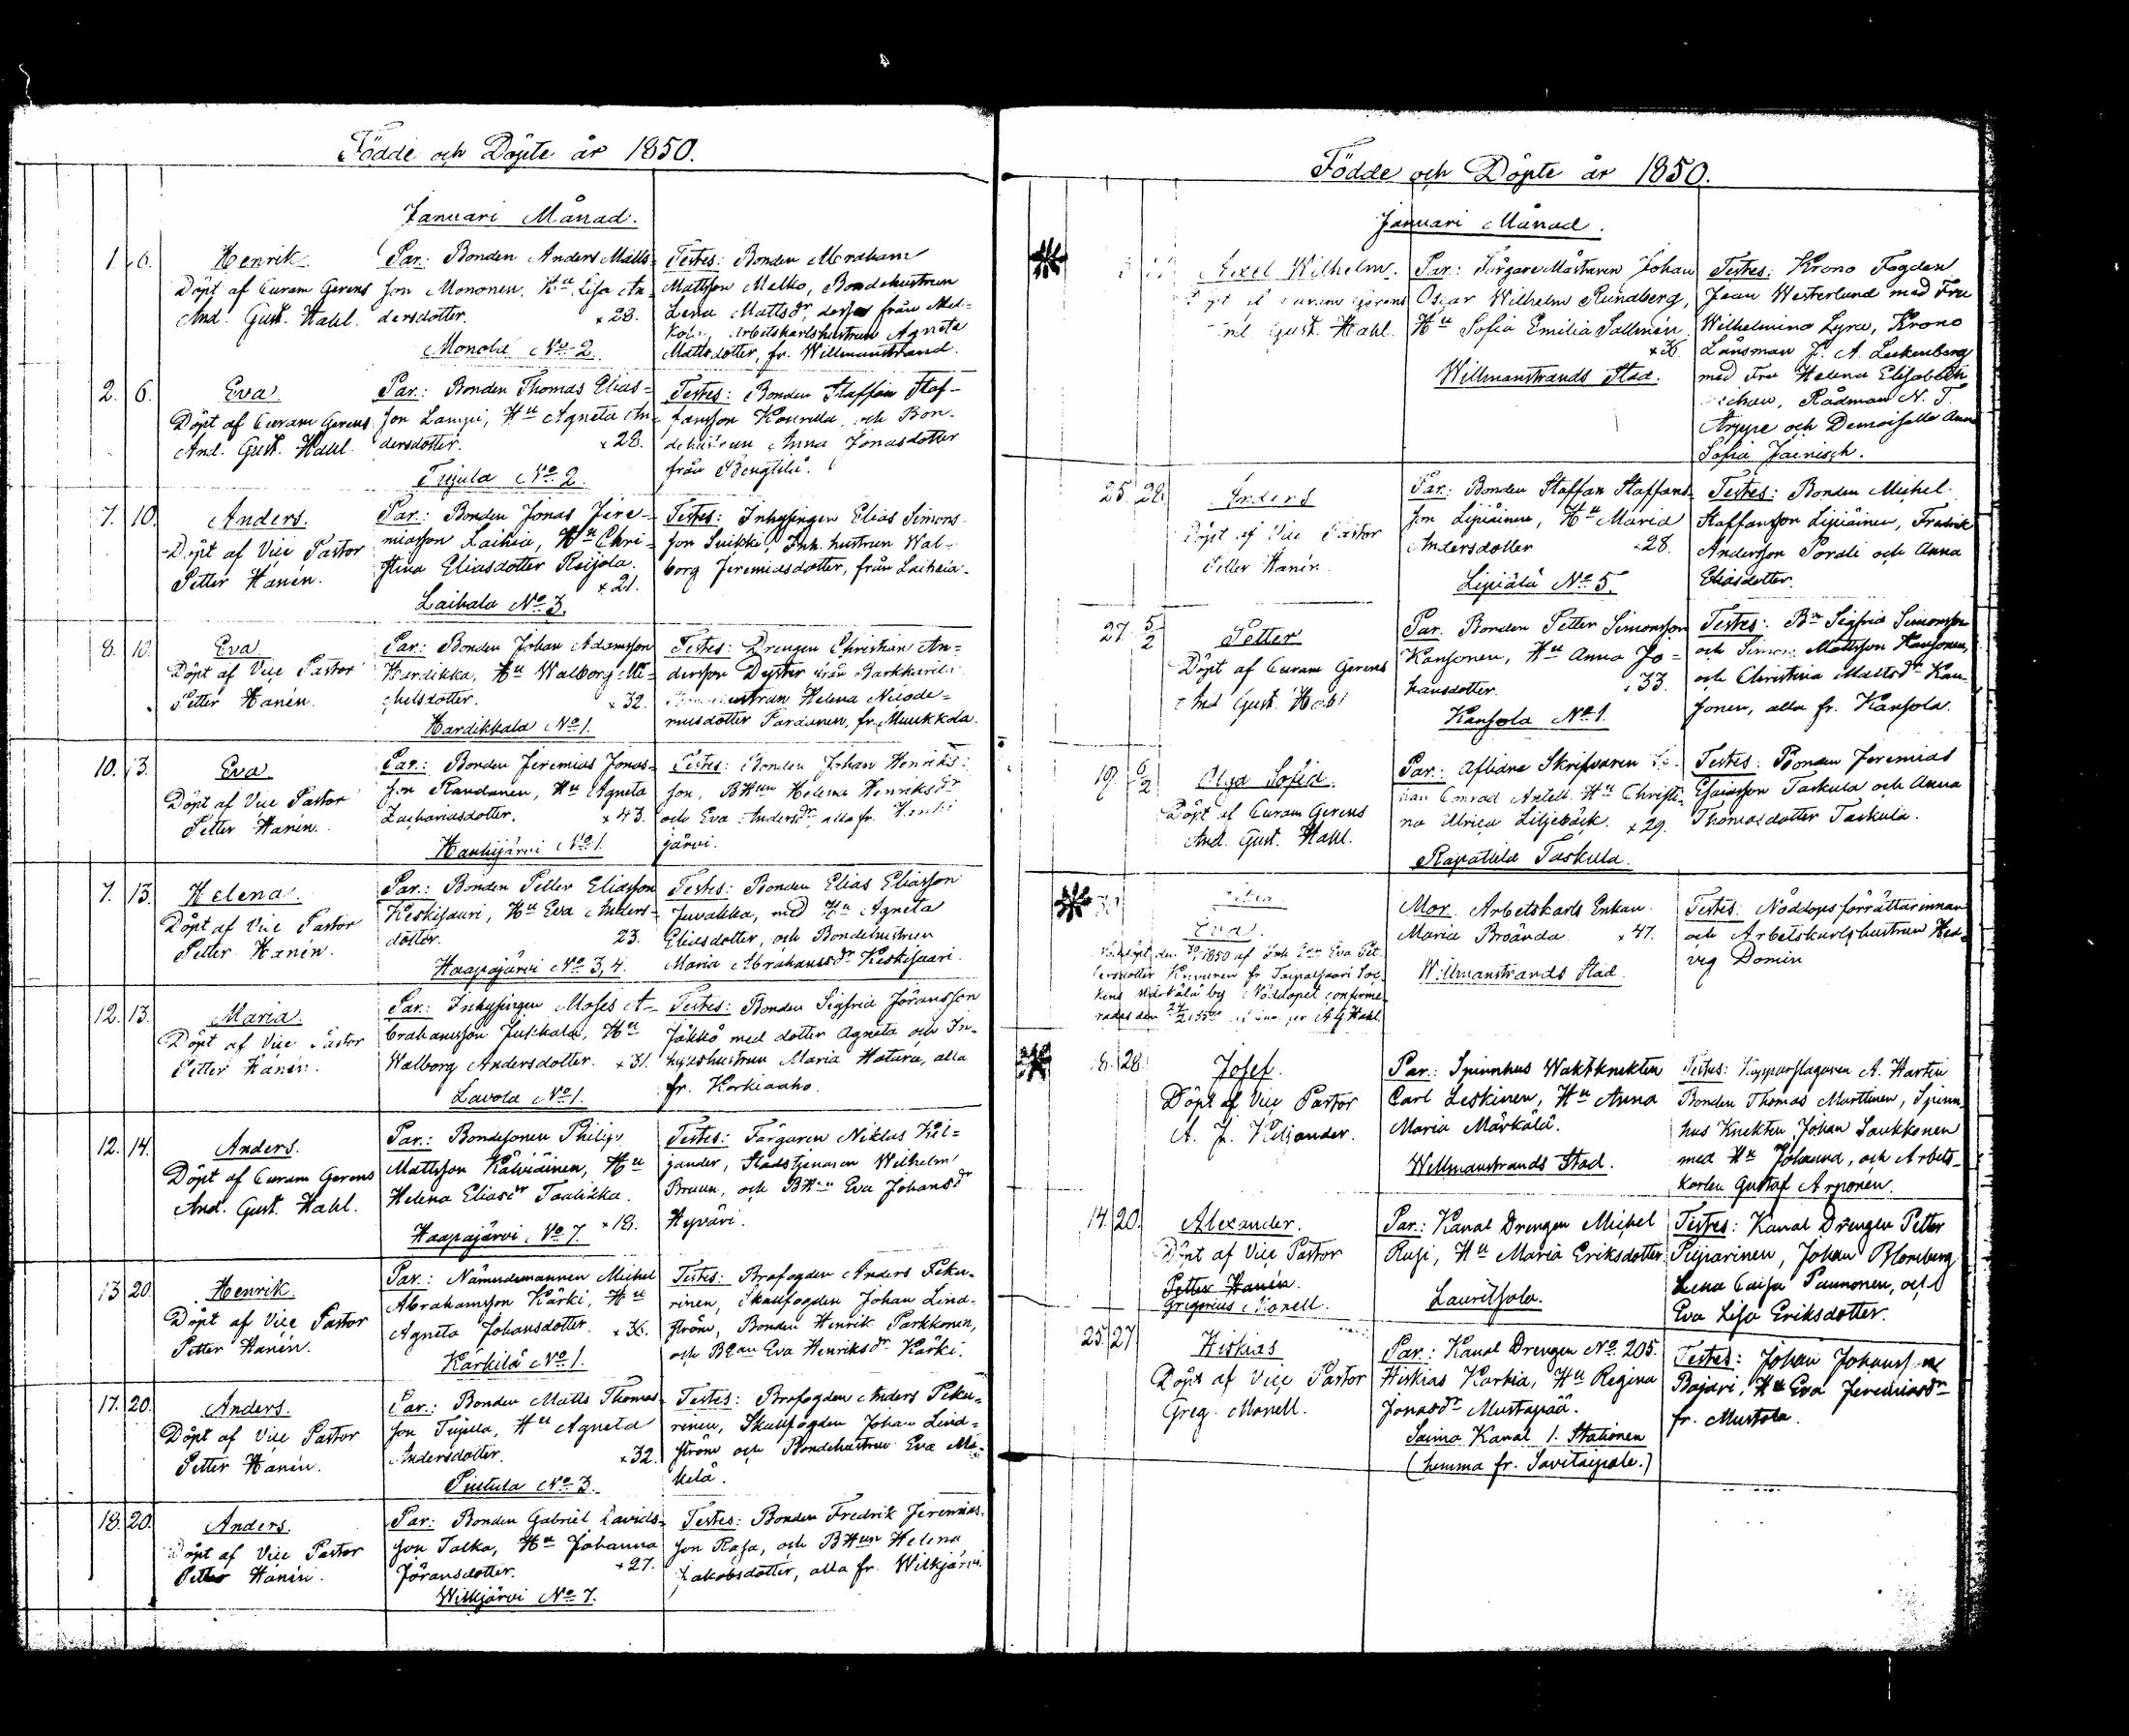 Födde och Döpte år 1850.
Januari Månad.
1. 6. Henrik.
Döpt af Curam Gerens
And. Gust. Hahl.
Par: Bonden Anders Matts-
son Mononen, Hu Lisa An-
dersdotter. x 28.
Monola No 2.
Testes: Bonden Abraham
Mattsson Melko, Bondehustrun
Lena Mattsdr, desse från Mel-
Arbetskarlshustrun Agneta
Mattsdotter, fr. Willmanstrand.
2. 6. Eva.
Döpt af Curam Gerens
And. Gust. Hahl.
Par: Bonden Thomas Elias-
son Lampi, Hu Agneta An-
dersdotter. x 28.
No 2.
Testes: Bonden Staffan Staf-
fansson och Bon-
dehustrun Anna Jonasdotter
från
7. 10. Anders.
Döpt af Vice Pastor
Petter Hanén.
Par: Bonden Jonas Jere-
miasson Laihia, Hu Chri-
stina Eliasdotter Reijola.
x 21.
Laihala No 3.
Testes: Inhysingen Elias Simons-
son Suikki, Inh. hustrun Wal-
borg Jeremiasdotter, från Laihia.
8. 10. Eva.
Döpt af Vice Pastor
Petter Hanén.
Par: Bonden Johan Adamsson
Hardikka, Hu Walborg Mi-
chelsdotter. x 32.
Hardikkala No 1.
Testes: Drengen Christian An-
dersson Dyster från
Helena Nicode-
musdotter Pardanen, fr. Muukkola.
10. 13. Eva
Döpt af Vice Pastor
Petter Hanén.
Par: Bonden Jeremias Jonas-
son Randanen, Hu Agneta
Zachariasdotter. x 43.
Hanhijärvi No 1.
Testes: Bonden Johan Henriks-
son, BHun Helena Henriksdr
och Eva Andersdr, alla fr. Hanhi-
järvi.
7. 13. Helena.
Döpt af Vice Pastor
Petter Hanén.
Par: Bonden Petter Eliasson
Keskisaari, Hu Eva Anders-
dotter. 23.
Haapajärvi No 3, 4.
Testes: Bonden Elias Eliasson
Juvakka, med Hu Agneta
Eliasdotter, och Bondehustrun
Maria Abrahamsdr Keskisaari.
12. 13. Maria.
Döpt af Vice Pastor
Petter Hanén.
Par: Inhysingen Moses A-
brahamsson Juskala, Hu
Walborg Andersdotter. x 31.
Lavola No 1.
Testes: Bonden Sigfrid Jöransson
Jäkkö med dotter Agneta och In-
hyseshustrun Maria Hatura, alla
fr. Korkiaaho.
12. 14. Anders.
Döpt af Curam Gerens
And. Gust. Hahl.
Par: Bondesonen Philip
Mattsson Kälviäinen, Hu
Helena Eliasdr Taalikka.
Haapajärvi No 7. x 18.
Testes: Färgaren Niklas Kil-
jander, Stadstjenaren Wilhelm
Bruun, och BHun Eva Johansdr
Hyväri.
13 20. Henrik.
Döpt af Vice Pastor
Petter Hanén.
Par: Nämndemannen Michel
Abrahamsson Kärki, Hu
Agneta Johansdotter. x 36.
Kärkilä No 1.
Testes: Brofogden Anders Peku-
rinen, Skallfogden Johan Lind-
ström, Bonden Henrik Parkkonen,
och Eva Henriksdr Kärki.
17. 20. Anders.
Döpt af Vice Pastor
Petter Hanén.
Par: Bonden Matts Thomas-
son Hu Agneta
Andersdotter. x 32.
No 3.
Testes: Brofogden Anders Peku-
rinen, Skallfogden Johan Lind-
ström och Bondehustrun Eva Mi-
kelä.
18. 20. Anders.
Döpt af Vice Pastor
Petter Hanén.
Par: Bonden Gabriel Davids-
son Talka, Hu Johanna
Jöransdotter. x 27.
Wilkjärvi No 7.
Testes: Bonden Fredrik Jeremias-
son Rasa, och BHun Helena
Jakobsdotter, alla fr. Wilkjärvi.
Födde och Döpte år 1850.
Januari Månad.
Axel Wilhelm.
Curam Gerens
And. Gust. Hahl.
Par: Färgare Mästaren Johan
Oscar Wilhelm Rundberg,
Hu Sofia Emilia Sallmén.
x 36.
Willmanstrands Stad.
Testes: Krono Fogden
Jean Westerlund med Fru
Wilhelmina Lyra, Krono
Länsman J. A. Luckenberg
med Fru Helena Elisabeth
Rådman N. T.
Arppe och Demoiselle Anna
Sofia Jaenisch.
25. 28. Anders
Döpt af Vice Pastor
Petter Hanén.
Par: Bonden Staffan Staffans-
son Lipiäinen, Hu Maria
Andersdotter 28.
Lipiälä No 5.
Testes: Bonden Michel
Staffansson Lipiäinen, Fredrik
Andersson Pordli och Anna
Eliasdotter.
27 5/2 Petter
Döpt af Curam Gerens
And Gust. Hahl
Par. Bonden Petter Simonsson
Kansonen, Hu Anna Jo-
hansdotter. x 33.
Kansola No 1.
Testes: Bn Sigfrid Simonsson
och Simon Mattsson Kansonen,
och Christina Mattsdr Kan-
sonen, alla fr. Kansola.
19. 6/2 Olga Sofia.
Döpt af Curam Gerens
And. Gust. Hahl.
Par: Aflidne Skrifvaren Jo-
han Conrad Antell. Hu Christi-
na Ulrica Liljebäck. x 29.
Rapattila Taskula.
Testes: Bonden Jeremias
Esaiasson Taskula och Anna
Thomasdotter Taskula.
Eva.
1850 af Inh. Eva Pet-
tersdotter fr. Taipalsaari Soc-
kens Märkälä by Nöddopet confirme-
rades den A G Hahl.
Mor. Arbetskarls Enkan
Maria Broända x 47.
Willmanstrands Stad.
Testes: Nöddopsförrättarinnan
och Arbetskarlshustrun Hed-
vig Domin
8. 28. Josef.
Döpt af Vice Pastor
A. J. Kiljander.
Par: Spinnhus Waktknekten
Carl Leskinen, Hu Anna
Maria Märkälä.
Willmanstrands Stad.
Testes: Kopparslagaren A. Hartin
Bonden Thomas Marttinen, Spinn-
hus Knekten Johan Saukkonen
med Hu Johanna, och Arbets-
karlen Gustaf Arponen.
14. 20. Alexander.
Döpt af Vice Pastor
Petter Hanén.
Gregorius Monell.
Par: Kanal Drengen Michel
Rusi, Hu Maria Eriksdotter
Lauritsala.
Testes: Kanal Drengen Petter
Piiparinen, Johan Blomberg
Lena Caisa Paunonen, och
Eva Lisa Eriksdotter.
25. 27 Hiskias
Döpt af Vice Pastor
Greg. Monell.
Par: Kanal Drengen No 205.
Hiskias Karhia, Hu Regina
Jonasdr Mustapää.
Saima Kanal 1. Stationen
(hemma fr. Savitaipale.)
Testes: Johan Johansson
Bajari, Hu Eva Jeremiasdr
fr. Mustola.